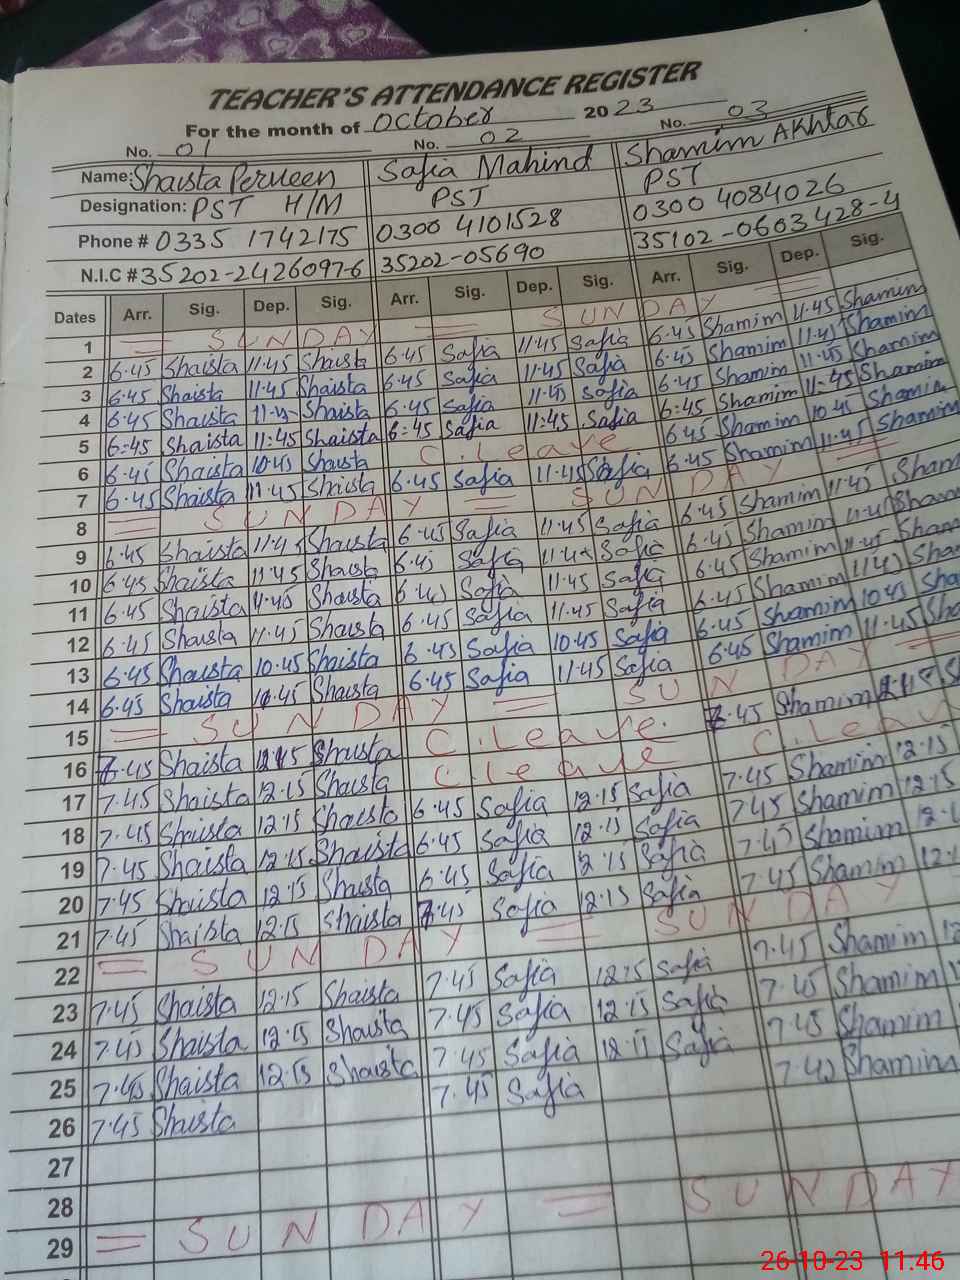 TEACHER'S ATTENDANCE REGISTER
For the month of October 2023
No. 01 No. 02 No. 03
Name: Shaista Perveen Safia Mahind Shamim Akhtar
Designation: PST H/M PST PST
Phone # 0335 1742175 0300 4101528 0300 4084026
N.I.C # 35202-2426097-6 35202-05690 35102-0603428-4
Dates Arr. Sig. Dep. Sig. Arr. Sig. Dep. Sig. Arr. Sig. Dep. Sig.
1 = SUNDAY = SUNDAY =
2 6.45 Shaista 11.45 Shaista 6.45 Safia 11.45 Safia 6.45 Shamim 11.45 Shamim
3 6.45 Shaista 11.45 Shaista 6.45 Safia 11.45 Safia 6.45 Shamim 11.45 Shamim
4 6.45 Shaista Shaista 6.45 Safia 11.45 Safia 6.45 Shamim 11.45 Shamim
5 6:45 Shaista 11:45 Shaista 6:45 Safia 11:45 Safia 6:45 Shamim 11:45 Shamim
6 6.45 Shaista 10.45 Shaista C. Leave 6.45 Shamim 10.45 Shamim
7 6.45 Shaista 11.45 Shaista 6.45 Safia 11.45 Safia 6.45 Shamim 11.45 Shamim
8 = SUNDAY = SUNDAY =
9 6.45 Shaista 11.45 Shaista 6.45 Safia 11.45 Safia 6.45 Shamim 11.45 Sham
10 6.45 Shaista 11.45 Shaista 6.45 Safia 11.45 Safia 6.45 Shamim 11.45 Sham
11 6.45 Shaista 11.45 Shaista 6.45 Safia 11.45 Safia 6.45 Shamim 11.45 Sham
12 6.45 Shaista 11.45 Shaista 6.45 Safia 11.45 Safia 6.45 Shamim 11.45 Sha
13 6.45 Shaista 10.45 Shaista 6.45 Safia 10.45 Safia 6.45 Shamim 10.45 Sha
14 6.45 Shaista Shaista 6.45 Safia 11.45 Safia 6.45 Shamim 11.45 Sha
15 = SUNDAY = SUNDAY =
16 Shaista Shaista C. Leave. 7.45 Shamim S
17 7.45 Shaista 12.15 Shaista C. Leave C. Leav
18 7.45 Shaista 12.15 Shaista 6.45 Safia 12.15 Safia 7.45 Shamim 12.15
19 7.45 Shaista 12.15 Shaista 6.45 Safia 12.15 Safia 7.45 Shamim 12.15
20 7.45 Shaista 12.15 Shaista 6.45 Safia 12.15 Safia 7.45 Shamim
21 7.45 Shaista 12.15 Shaista 7.45 Safia 12.15 Safia 7.45 Shamim
22 = SUNDAY = SUNDAY
23 7.45 Shaista 12.15 Shaista 7.45 Safia 12.15 Safia 7.45 Shamim
24 7.45 Shaista 12.15 Shaista 7.45 Safia 12.15 Safia 7.45 Shamim
25 7.45 Shaista 12.15 Shaista 7.45 Safia 12.15 Safia 7.45 Shamim
26 7.45 Shaista 7.45 Safia 7.45 Shamim
27
28
29 = SUNDAY = SUNDAY
26-10-23 11.46